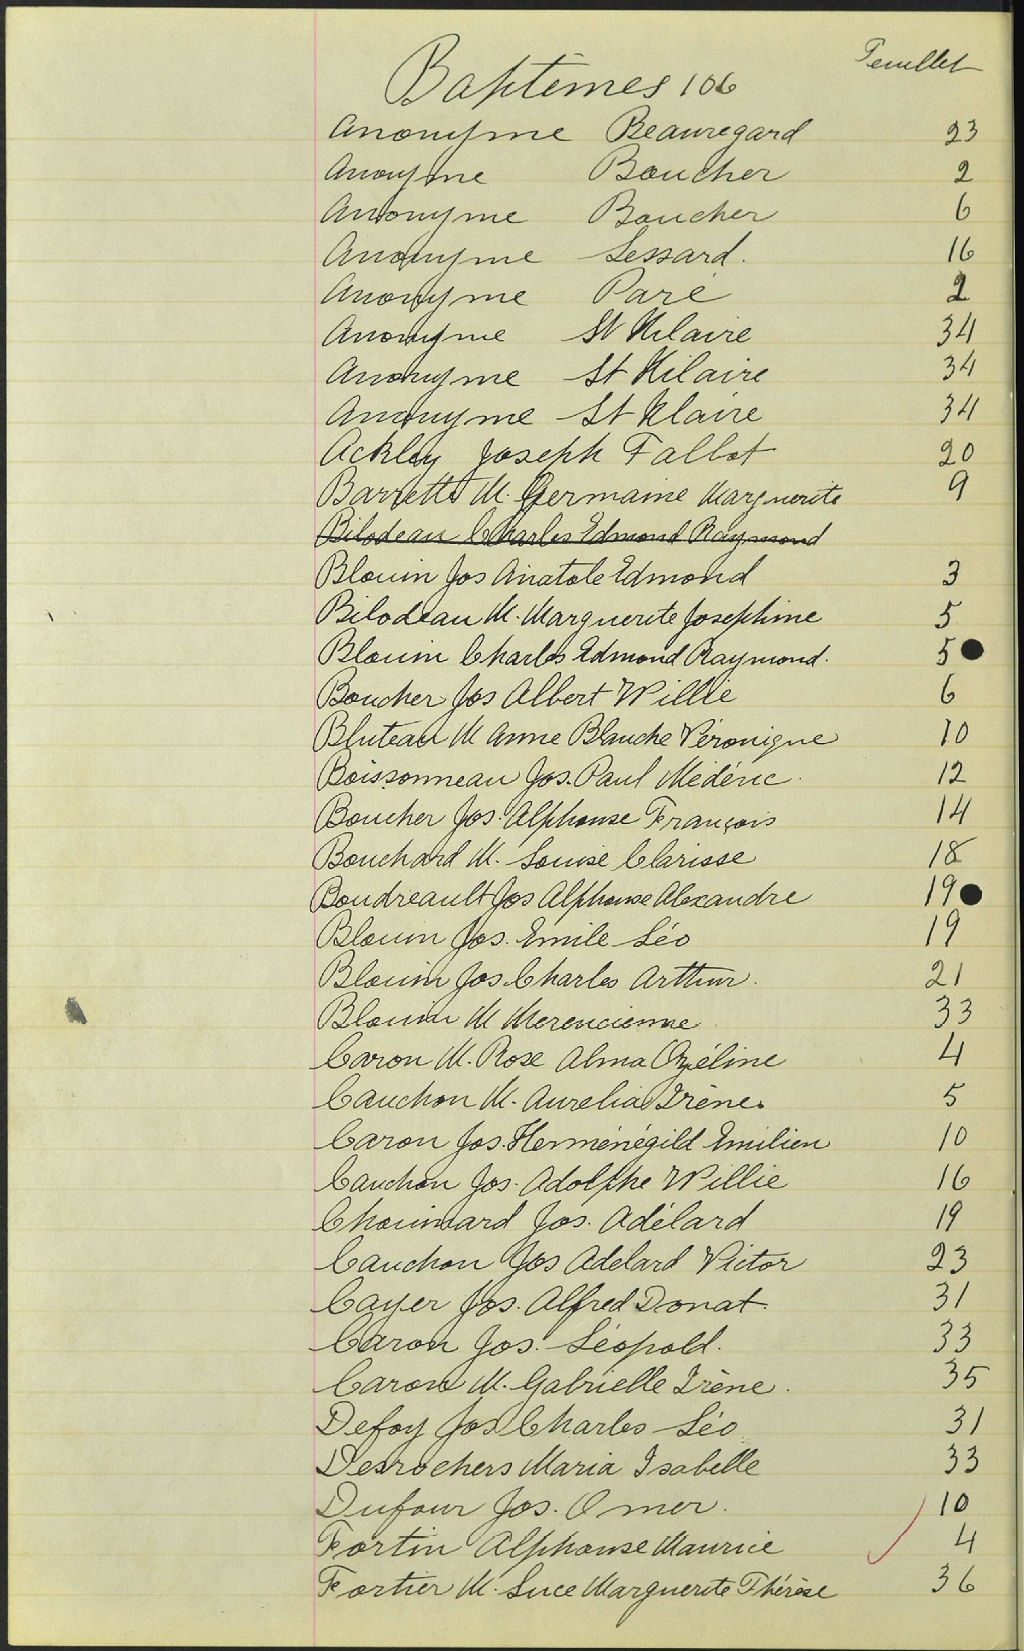 Feuillet
Baptêmes 106
Anonyme Beauregard 23
Anoyme Boucher 2
Anonyme Boucher 6
Anonyme Lessard. 16
Anonyme Paré 2
Anonyme St Hilaire 34
Anonyme St Hilaire 34
Anonyme St Hlaire 34
Ackley Joseph Talbot 20
Barrette M. Germaine Marguerite 9
Bilodeau Charles Edmond Raymond
Blouin Jos Anatole Edmond 3
Bilodeau M. Marguerite Josephine 5
Blouin Charles Edmond Raymond. 5
Boucher Jos Albert Willie 6
Bluteau M Anne Blanche Véronique 10
Boissonneau Jos. Paul Médéric. 12
Boucher Jos. Alphonse François 14
Bouchard M. Louise Clarisse 18
Boudreault Jos Alphonse Alexandre 19
Blouin Jos. Emile Léo 19
Blouin Jos. Charles Arthur. 21
Blouin M Merencienne 33
Caron M. Rose Alma Ozéline 4
Cauchon M. Aurelia Irène. 5
Caron Jos. Herménégild Emilien 10
Cauchon Jos. Adolphe Willie 16
Chouinard Jos. Adélard 19
Cauchon Jos Adelard Victor 23
Cayer Jos. Alfred Donat. 31
Caron Jos. Léopold. 33
Caron M. Gabrielle Irène. 35
Defoy Jos Charles Léo 31
Desrochers Maria Isabelle 33
Dufour Jos. Omer. 10
Fortin Alphonse Maurice 4
Fortier M. Luce Marguerite Thérèse 36